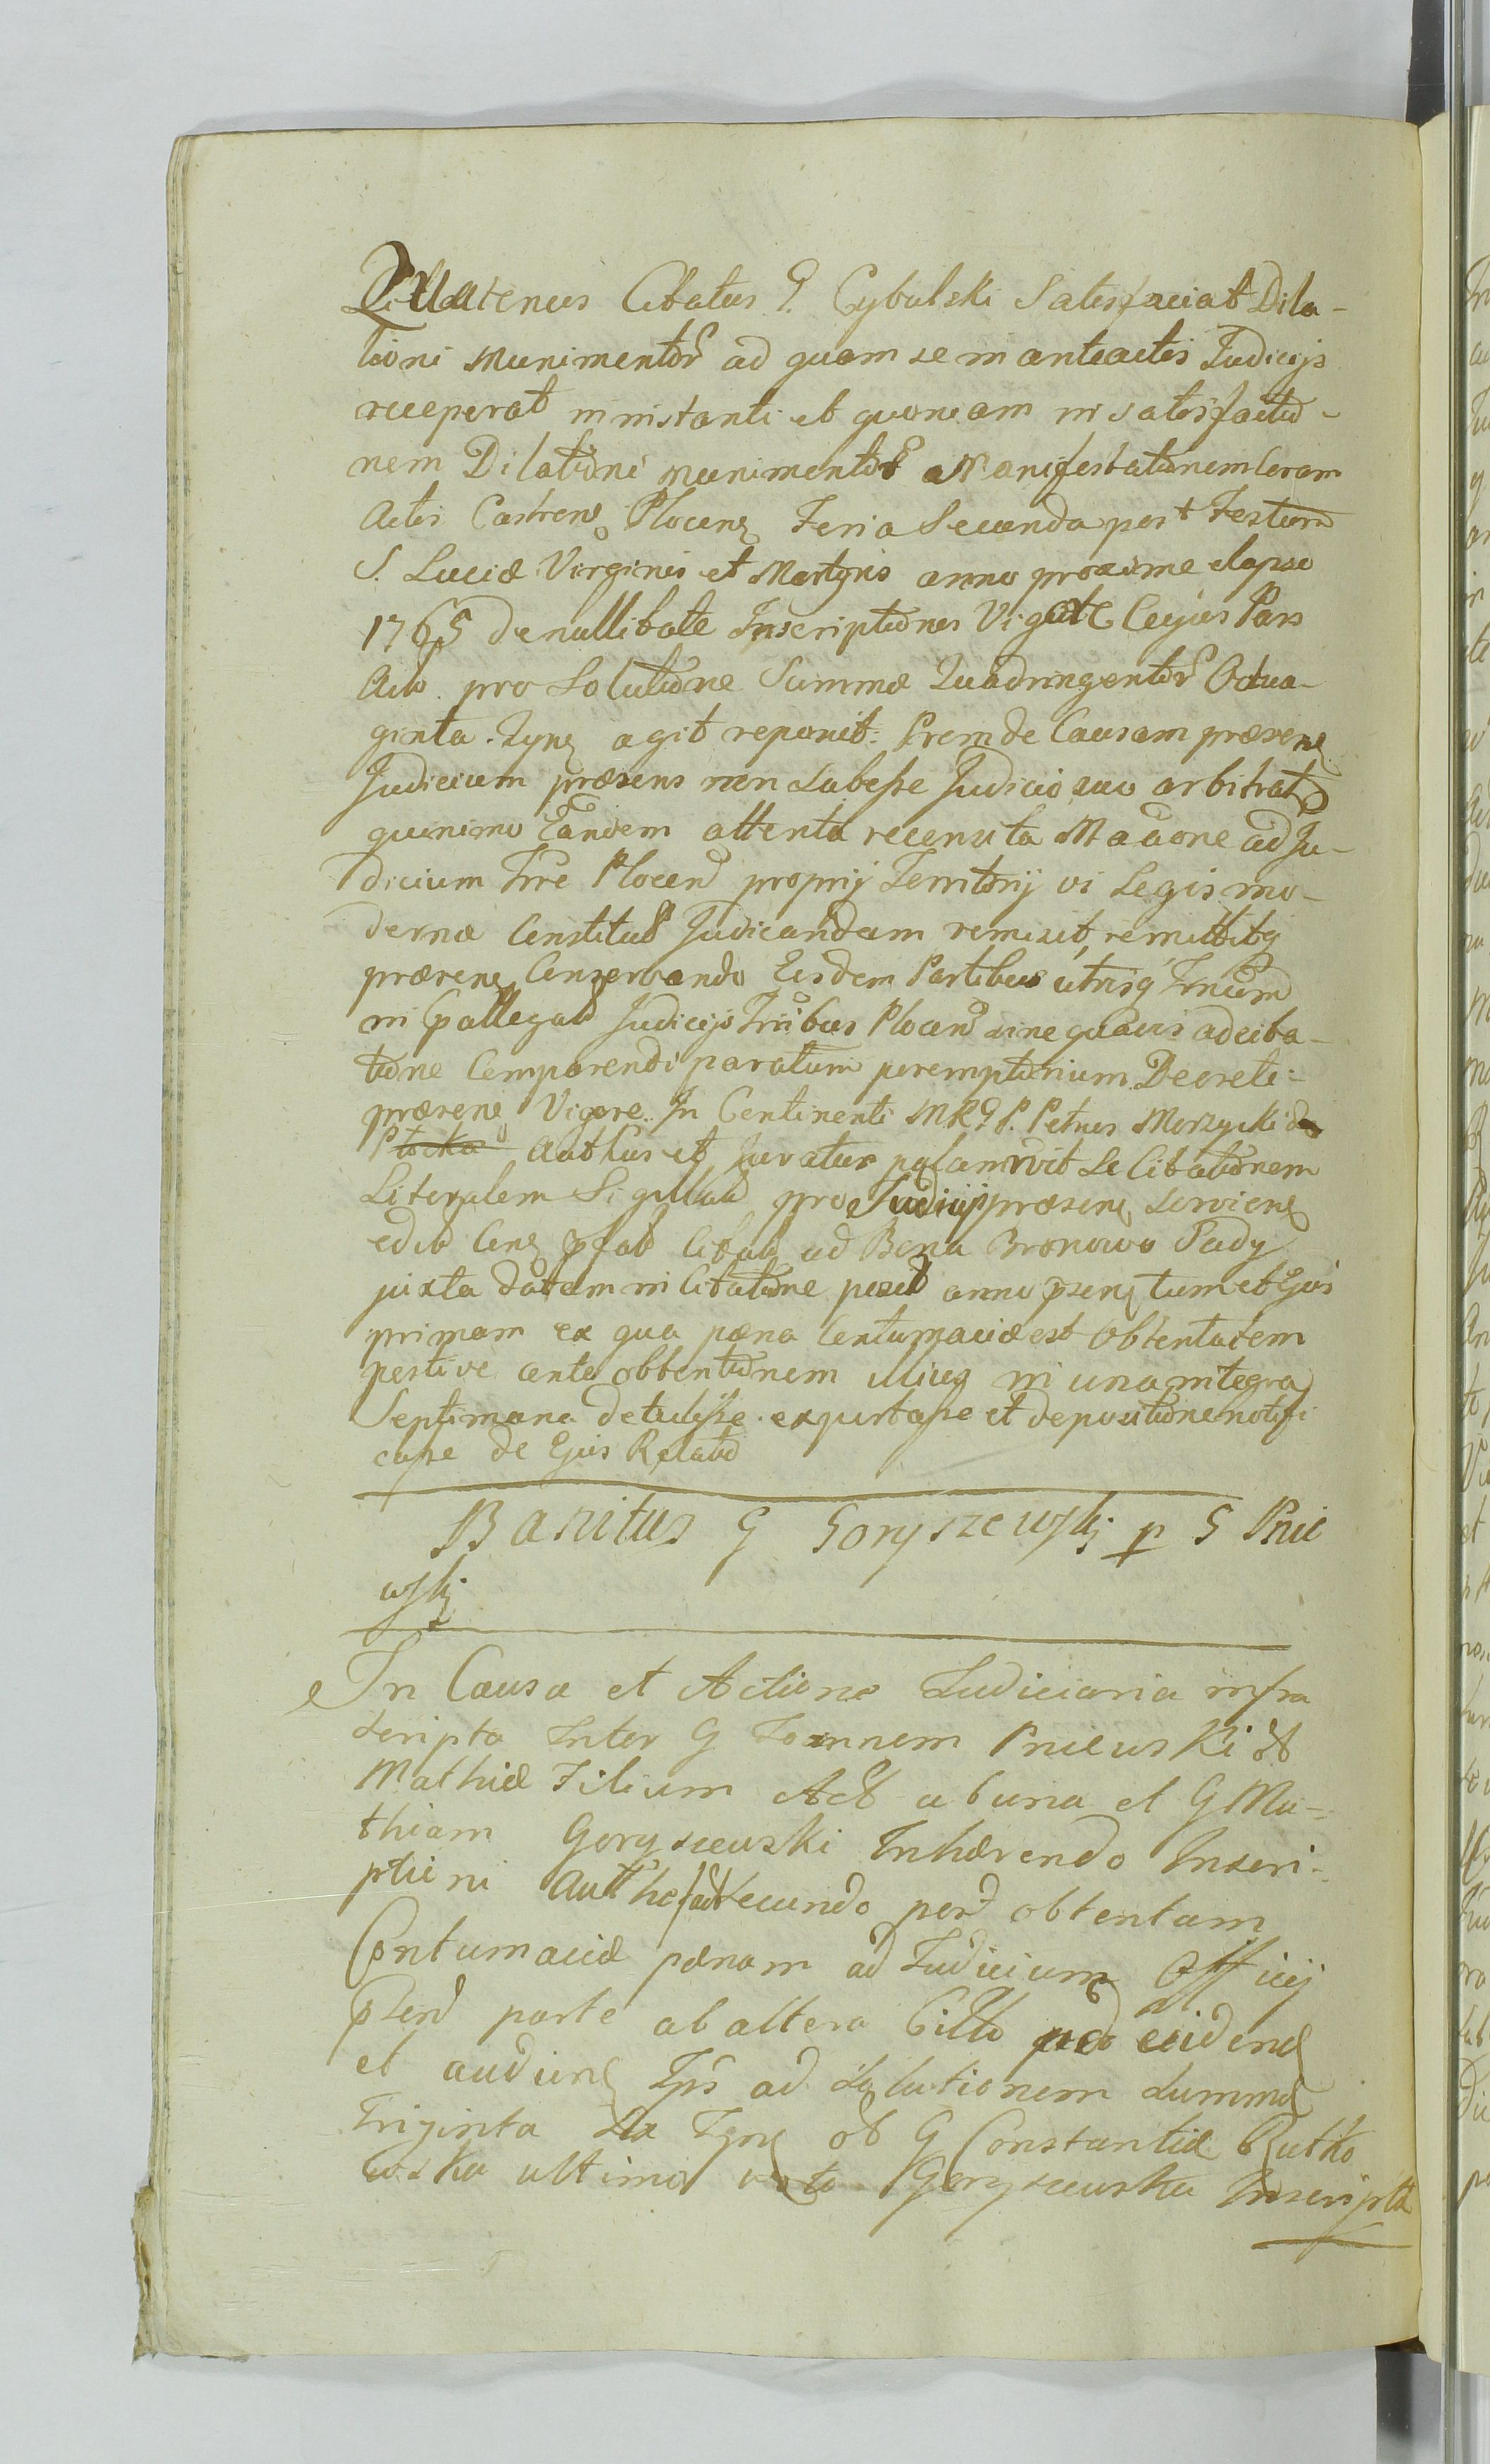 Quatenus Citatus G. Cybulski Satisfaciat Dila-
tioni Munimentor ad quam se in anteactis Judicijs
receperat in instanti et quoniam in satisfactio-
nem Dilationi munimentor Manifestationem Coram
Actis Castren Plocen Feria Secunda post Festum
S. Luciæ Virginis et Martyris anno proxime elapso
1765 de nullitate Inscriptiones Vigore Cujus Pars
Act. pro Solutione Summæ Quadringentor Octua-
ginta. Tyn agit reponit. Proinde Causam præsen
Judicium præsens non subesse Judicio suo arbitrat
quinimo Eandem attenta recensita ad Ju-
dicium Trre Plocen proprij Territorij vi Legis mo-
dernæ Constitut Judicandam remisit, remittitq
præsen Conservando Eisdem Partibus utrisq Trnum
in pallegat Judicijs Trribus Plocen sine quavis adcita-
tione Comparendi paratum peremptorium Decreti
præsen Vigore. In Continenti MRG P. Petrus Morzycki de
Plocko Authus et Juratus palam rvit Se Citationem
Literalem Sigillat pro Judicijs præsen servien
edit Cen pfat Citat ad Bona Bronowo Sady
juxta datam in Citatione posit anno psen tum et Ejus
primam ex qua pæna Contumaciæ est Obtenta tem
pestive ante obtentionem illius in una integra
Septimana detulisse exportasse et depositione notifi
casse de Ejus Relatio
Banitus G Goryszewski p G Pnie
wski
In Causa et Actione Judiciaria infra
scripta Inter G Joannem Pniewski
Mathiæ Filium Act ab una et G Ma-
thiam Goryszewski Inhærendo Inscri-
ptioni secundo post obtentam
Contumaciæ pænam ad Judicium Officij
psen parte ab altera Citto ad eviden
et audien Ips ad Solutionem summæ
Triginta Sex Tyn ob G Constantiæ Rutko
wska ultimo voto Goryszewska Inscriptæ